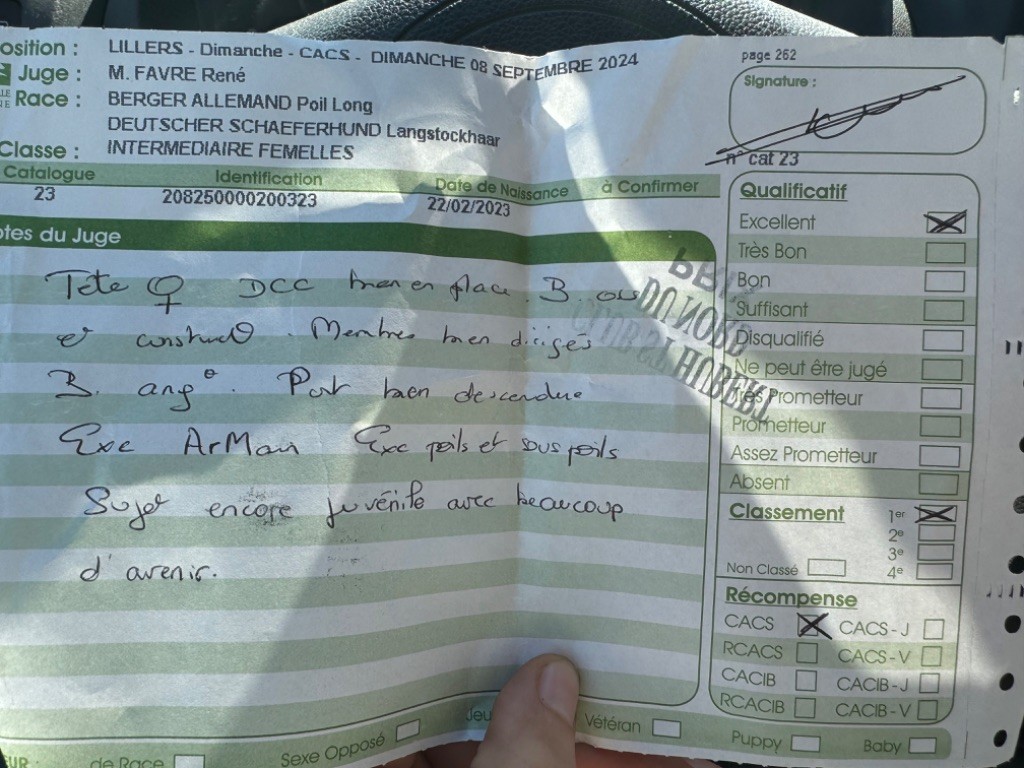 osition : LILLERS - Dimanche - CACS - DIMANCHE 08 SEPTEMBRE 2024
page 262
Juge : M. FAVRE René
Signature :
Race : BERGER ALLEMAND Poil Long
DEUTSCHER SCHAEFERHUND Langstockhaar
Classe : INTERMEDIAIRE FEMELLES
n° cat 23
Catalogue Identification Date de Naissance à Confirmer
23 208250000200323 22/02/2023
otes du Juge
Tête ♀ DCC bien en place. B. oss
et construct. Membres bien dirigés
B. ang°. Poit bien descendue
Exc ArMain Exc poils et sous poils
Sujet encore juvénile avec beaucoup
d'avenir.
Qualificatif
Excellent
Très Bon
Bon
Suffisant
Disqualifié
Ne peut être jugé
Très Prometteur
Prometteur
Assez Prometteur
Absent
Classement 1er
2e
3e
Non Classé 4e
Récompense
CACS CACS-J
RCACS CACS-V
CACIB CACIB-J
RCACIB CACIB-V
UR : de Race Sexe Opposé Jeu Vétéran Puppy Baby